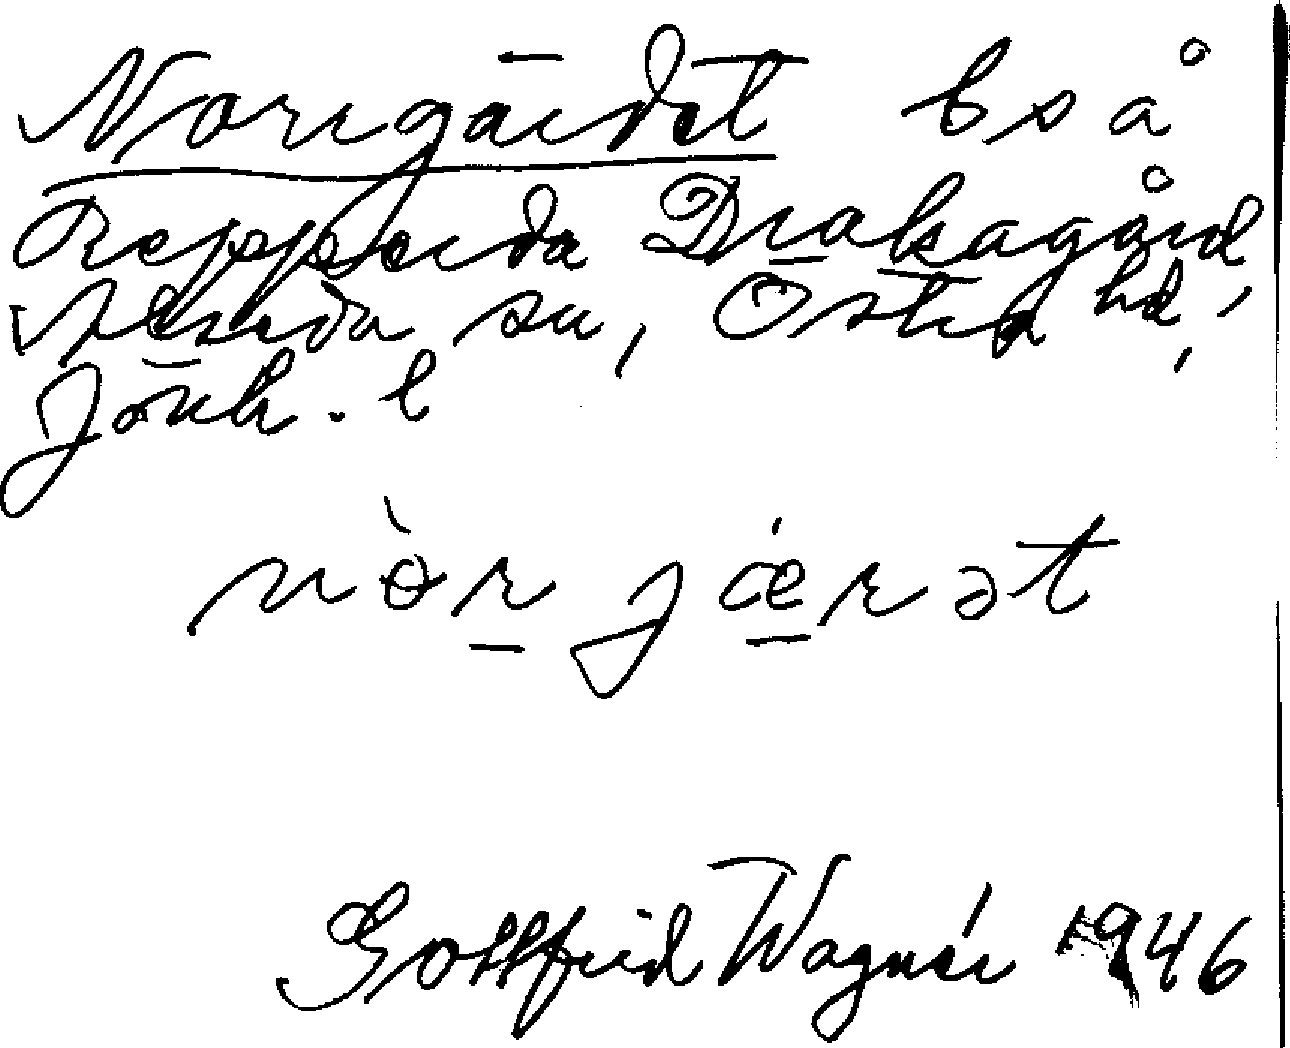 Norrgärdet bs å
Repperda Drakagård
Alseda sn, Östra hd,
Jönk. l
nɵ̀r jǽrət
Gottfrid Wagnér 1946